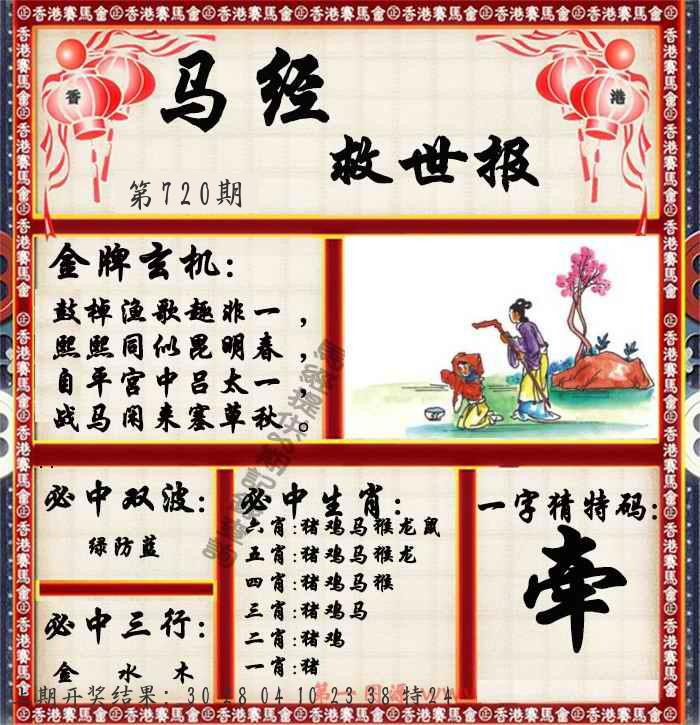 香港賽馬會
香
港
马经
救世报
第720期
金牌玄机:
鼓棹渔歌趣非一,
熙熙同似昆明春,
自平宫中吕太一,
战马闲来塞草秋。
必中双波:
绿防蓝
必中三行:
金 水 木
必中生肖:
六肖:猪鸡马猴龙鼠
五肖:猪鸡马猴龙
四肖:猪鸡马猴
三肖:猪鸡马
二肖:猪鸡
一肖:猪
一字猜特码:
牵
期开奖结果: 30 18 04 10 23 38 特24